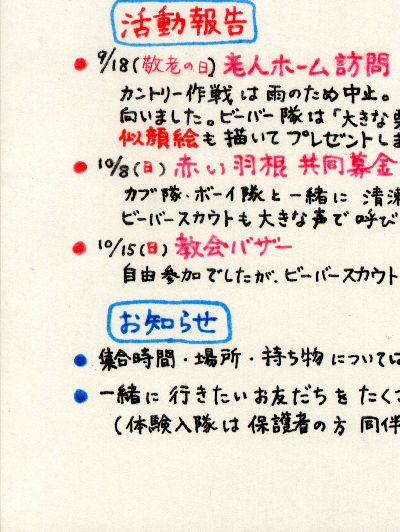 活動報告
9/18(敬老の日) 老人ホーム訪問
カントリー作戦は雨のため中止。
向いました。ビーバー隊は「大きな
似顔絵も描いてプレゼントしま
10/8(日) 赤い羽根 共同募金
カブ隊・ボーイ隊と一緒に 清
ビーバースカウトも大きな声で呼び
10/15(日) 教会バザー
自由参加でしたが、ビーバースカウト
お知らせ
集合時間・場所・持ち物については
一緒に行きたいお友だちをたく
(体験入隊は保護者の方 同伴